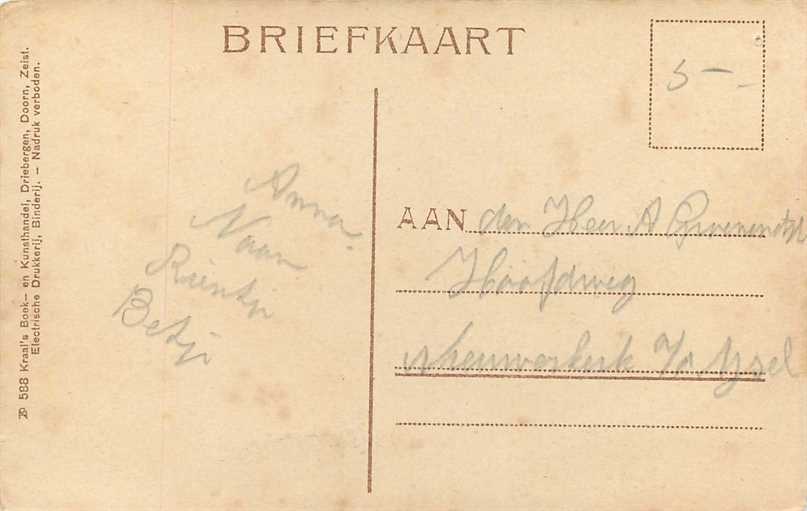 588 Kraal's Boek- en Kunsthandel, Driebergen, Doorn, Zeist.
Electrische Drukkerij, Binderij. — Nadruk verboden.
BRIEFKAART
5 —
Anna.
Naan
Rientje
Betje
AAN den Heer A Groenendijk
Hoofdweg
Nieuwerkerk a/d IJsel